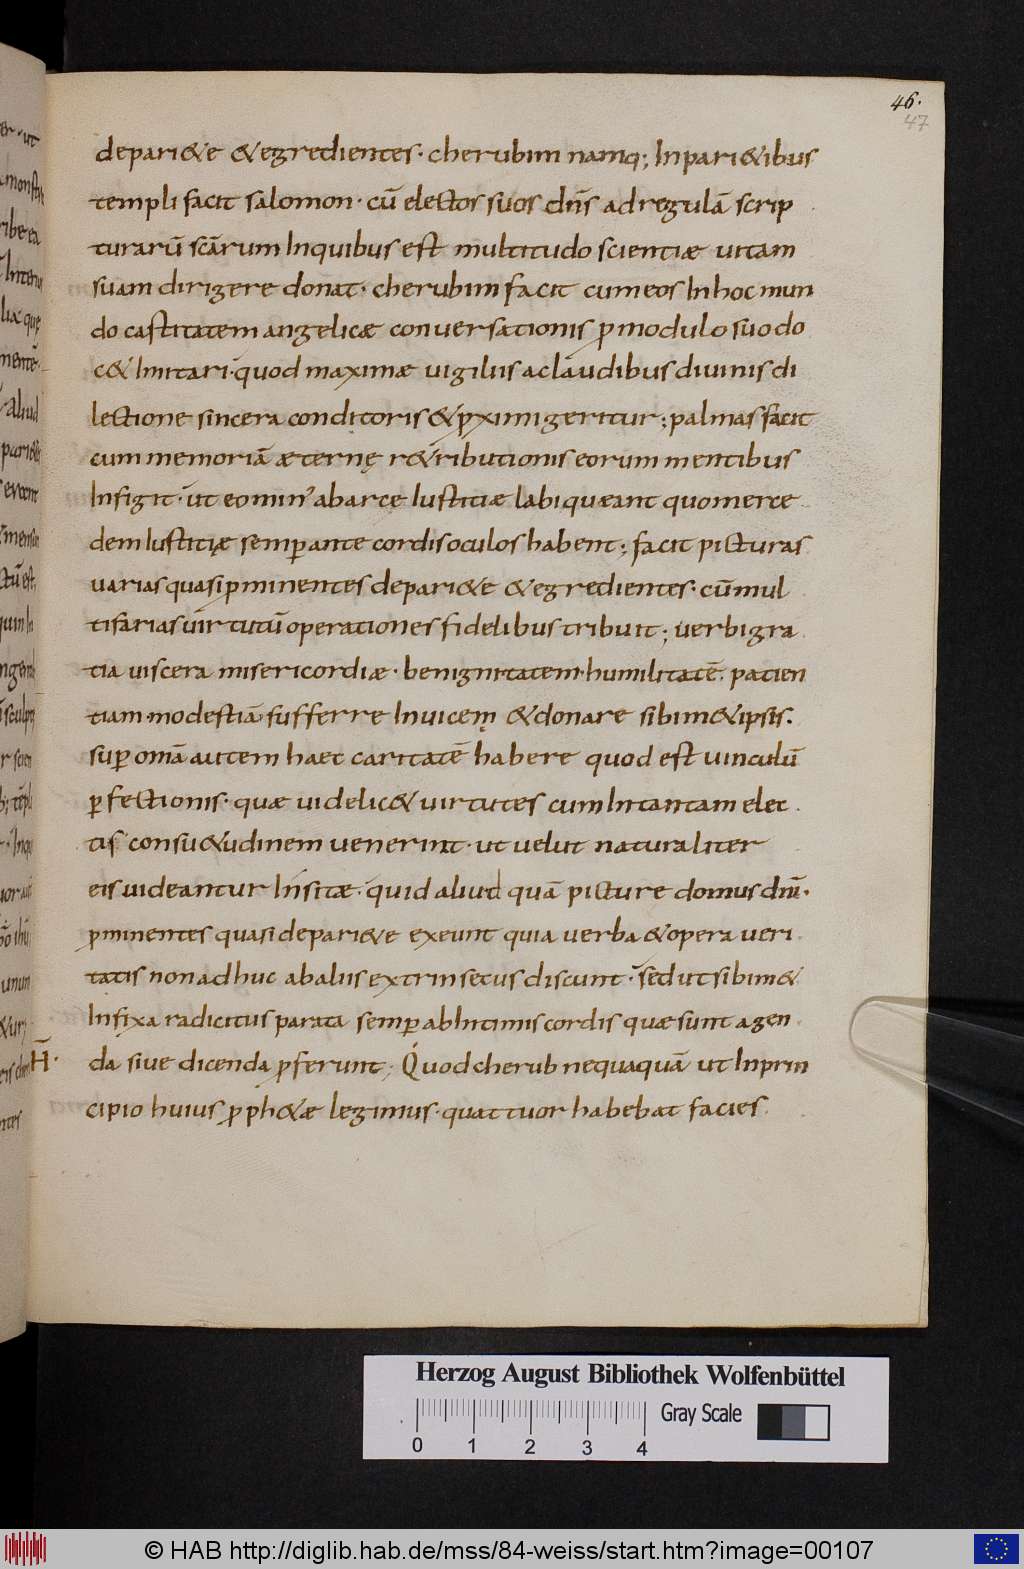 46.
47
depari&e &egredientes· cherubim namq; Inpari&ibus
templi facit salomon· cū electos suos dn̄s adregulā scrip
turarū scārum Inquibus est multitudo scientiæ uitam
suam dirigere donat· cherubim facit cum eos Inhoc mun
do castitatem angelicæ conuersationis ꝓmodulo suo do
c& Imitari· quod maximæ uigiliis aclaudibus diuinis di
lectione sincera conditoris &ꝓximi geritur; palmas facit
cum memoriā æternę r&ributionis eorum mentibus
Insigit· ut eo min' abarce Iustitiæ labi quæant quo merce
dem Iustitię semꝑ ante cordis oculos habent; facit picturas
uarias quasi ꝓminentes depari&e &egredientes· cū mul
tifarias uirtutū operationes fidelibus tribuit; uerbi gra
tia uiscera misericordiæ· benignitatem· humilitatē· patien
tiam· modestiā· sufferre Inuicem &donare sibim&ipsis.
suꝑ omā autem haec caritatē habere quod est uinculū
ꝑfectionis· quæ uidelic& uirtutes cum Intantam elec
tis consu&udinem uenerint· ut uelut naturaliter
eis uideantur Insitæ· quid aliud quā picture domus dnī·
ꝓminentes quasi depari&e exeunt quia uerba &opera ueri
tatis non adhuc abaliis extrinsecus discunt· sed ut sibim&
Infixa radicitus parata semꝑ abIntimis cordis quæ sunt agen
H̄·
da siue dicenda ꝓferunt; Quod cherub nequaquā ut Inprin
cipio huius ꝓph&æ legimus· quattuor habebat facies
Herzog August Bibliothek Wolfenbüttel
Gray Scale
0 1 2 3 4
© HAB http://diglib.hab.de/mss/84-weiss/start.htm?image=00107